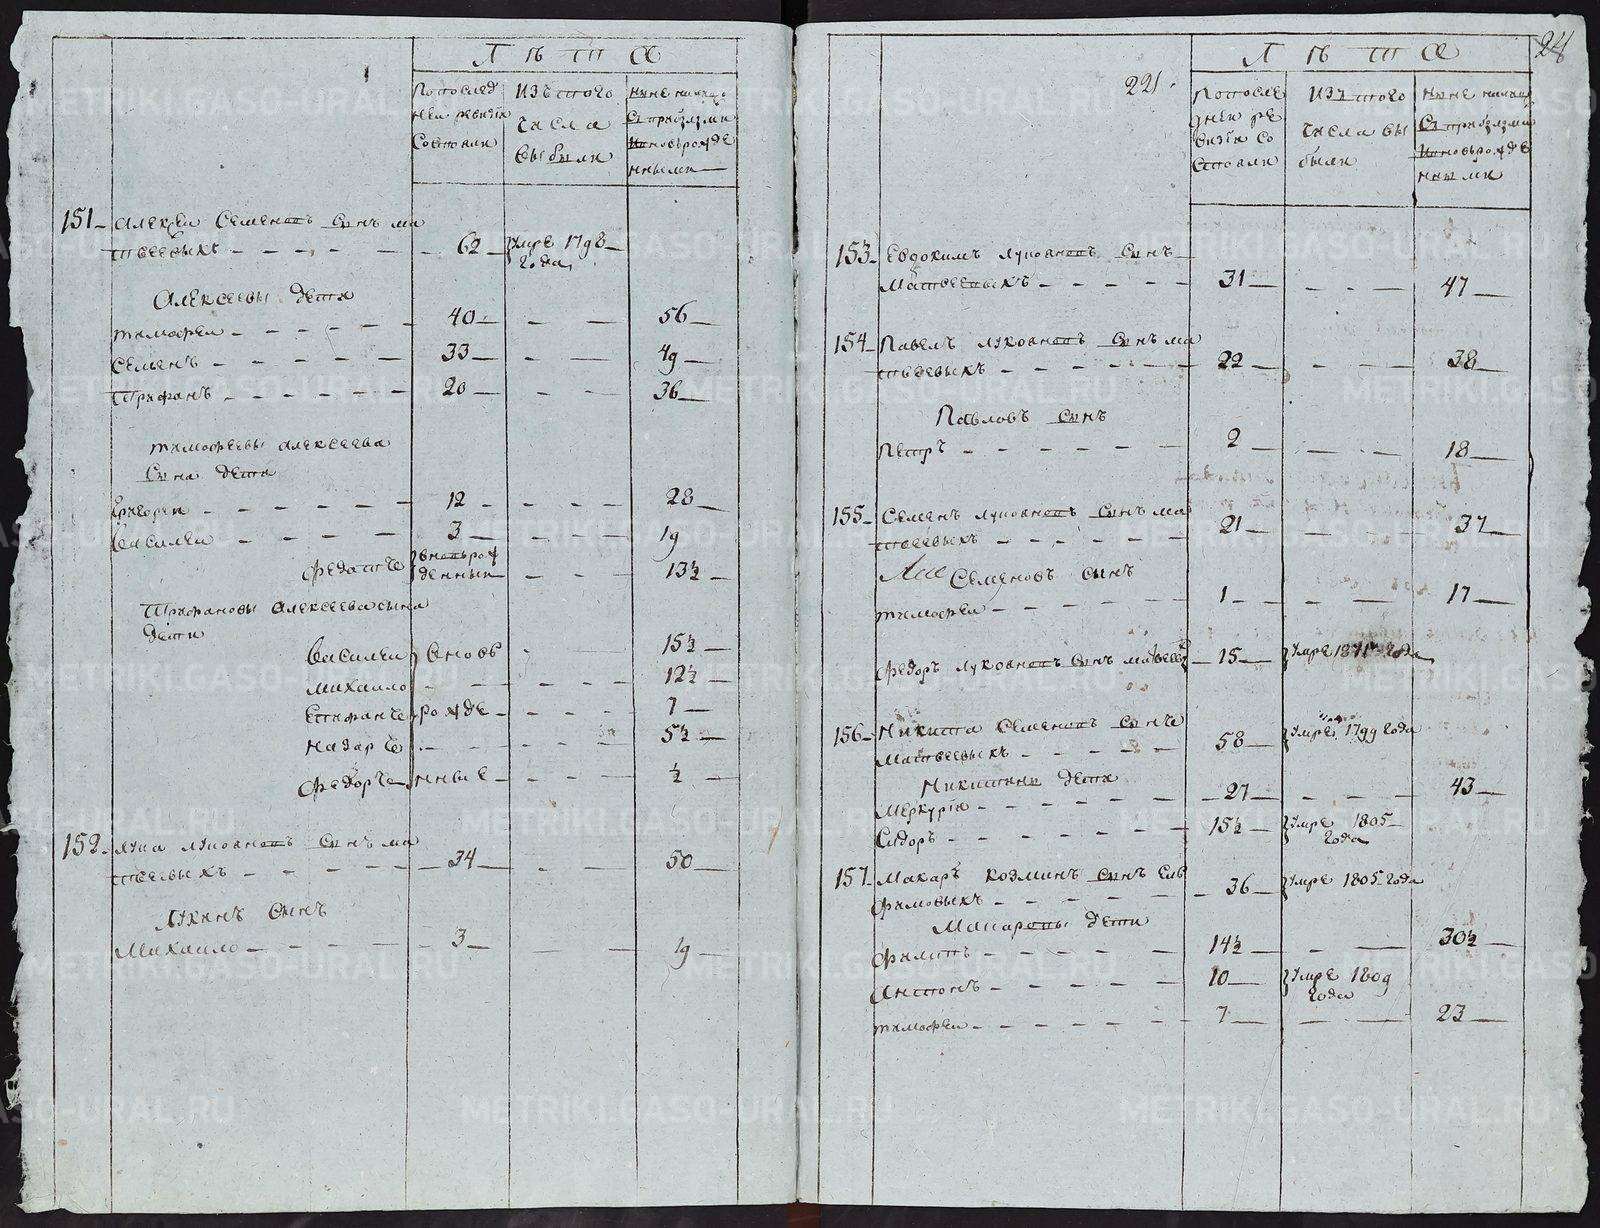 Лѣта
Попослед
ней ревизiи
состояли
изътого
числа
выбыли
ныне налицо
съприбылыми
иновърожде
нными
151 Алексеи Семеновъ сынъ ма
твеевыхъ 62 умре 1798
года
Алексеевы дети
тимофеи 40 56
Семенъ 33 49
Трифанъ 20 36
тимофеевы алексеева
сына дети
Григореи 12 28
Василеи 3 19
федотъ вновьрож
денныи 13½
Трифановы алексеева сына
дети
Василеи вновь 15½
михаило 12½
Епифанъ рожде 7
назаръ 5½
федоръ нные ½
152 лука луковновъ сынъ ма
твеевыхъ 34 50
лукинъ сынъ
Михаило 3 19
24
221
Лѣта
Попосле
дней ре
визiи со
стояли
изътого
числа вы
были
ныне налицо
съприбылыми
иновърожде
нными
153 Евдокимъ луковновъ сынъ
Матвеевыхъ 31 47
154 Павелъ луковновъ сынъ ма
твеевыхъ 22 38
Павловъ сынъ
Петръ 2 18
155 Семенъ луковновъ сынъ ма
твеевыхъ 21 37
Семеновъ сынъ
тимофеи 1 17
федоръ луковновъ сынъ матвеевы 15 умре года
156 Никита Семеновъ сынъ
Матвеевыхъ 58 умре 1799 года
Никитины дети
Меркурiи 27 43
Сидоръ 15½ умре 1805
года
157 Макаръ козминъ сынъ Ев
фимовыхъ 36 умре 1805 года
Макаровы дети
филипъ 14½ 30½
Антонъ 10 умре 1809
года
тимофеи 7 23
METRIKI.GASO-URAL.RU